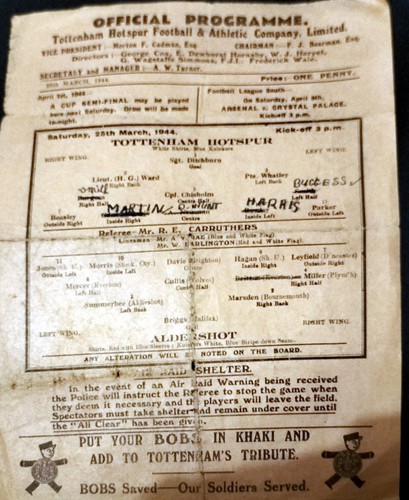 OFFICIAL PROGRAMME.
Tottenham Hotspur Football & Athletic Company, Limited.
VICE PRESIDENT - Morton F. Cadman, Esq. CHAIRMAN - F. J. Bearman, Esq.
Directors: George Cox, E. Dewhurst Hornsby, W. J. Heryet,
G. Wagstaffe Simmons, F.J.I. Frederick Wale.
SECRETARY and MANAGER: A. W. Turner.
25th MARCH, 1944. Price: ONE PENNY.
April 1st, 1944
A CUP SEMI-FINAL may be played
here next Saturday. Draw will be made
to-night.
Football League South
On Saturday, April 8th,
ARSENAL v. CRYSTAL PALACE.
Kick-off 3 p.m.
Saturday, 25th March, 1944. Kick-off 3 p.m.
TOTTENHAM HOTSPUR
White Shirts, Blue Knickers
RIGHT WING. LEFT WING.
Sgt. Ditchburn
Goal
Lieut. (H. G.) Ward
Right Back
Pte. Whatley
Left Back
Right Half
Cpl. Chisholm
Centre Half
BURGESS
Left Half
Beasley
Outside Right
MARTIN
Inside Right
Centre
HARRIS
Inside Left
Parker
Outside Left
Referee—Mr. R. E. CARRUTHERS
Linesmen (Blue and White Flag).
Mr. W. (Red and White Flag).
11
Outside Left
10
Morris (Stock. Cy.)
Inside Left
Davie (Brighton)
Centre
Hagan (Sh. U.)
Inside Right
Leyfield (Doncaster)
Outside Right
Mercer (Everton)
Left Half
Cullis (Wolves)
Centre Half
4
Miller (Plym'h)
Right Half
3
Summerbee (Aldershot)
Left Back
2
Marsden (Bournemouth)
Right Back
Briggs (Halifax)
LEFT WING. RIGHT WING.
ALDERSHOT
Shirts, Red with Blue Sleeves; Knickers White, Blue Stripe down Seam.
ANY ALTERATION WILL NOTED ON THE BOARD.
RAID SHELTER.
In the event of an Air Raid Warning being received
the Police will instruct the Referee to stop the game when
they deem it necessary and the players will leave the field.
Spectators must take shelter and remain under cover until
the "All Clear" has been given.
PUT YOUR BOBS IN KHAKI AND
ADD TO TOTTENHAM'S TRIBUTE.
BOBS Saved—Our Soldiers Served.